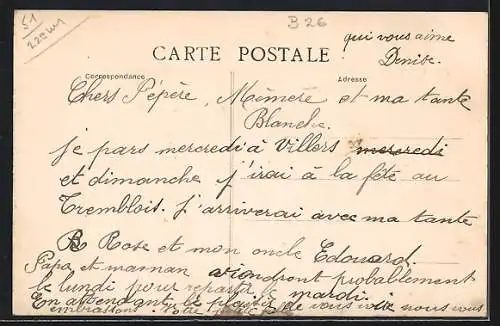 51
B 26
qui vous aime
Denise.
CARTE POSTALE
Correspondance
Adresse
Chers Pépère, Mémère et ma tante
Blanche.
Je pars mercredi à Villers mercredi
et dimanche j'irai à la fête au
Tremblois. J'arriverai avec ma tante
R Rose et mon oncle Edouard.
Papa et maman viendront probablement
le lundi pour repartir le mardi.
En attendant le plaisir de vous voir nous vous
embrassons. Votre